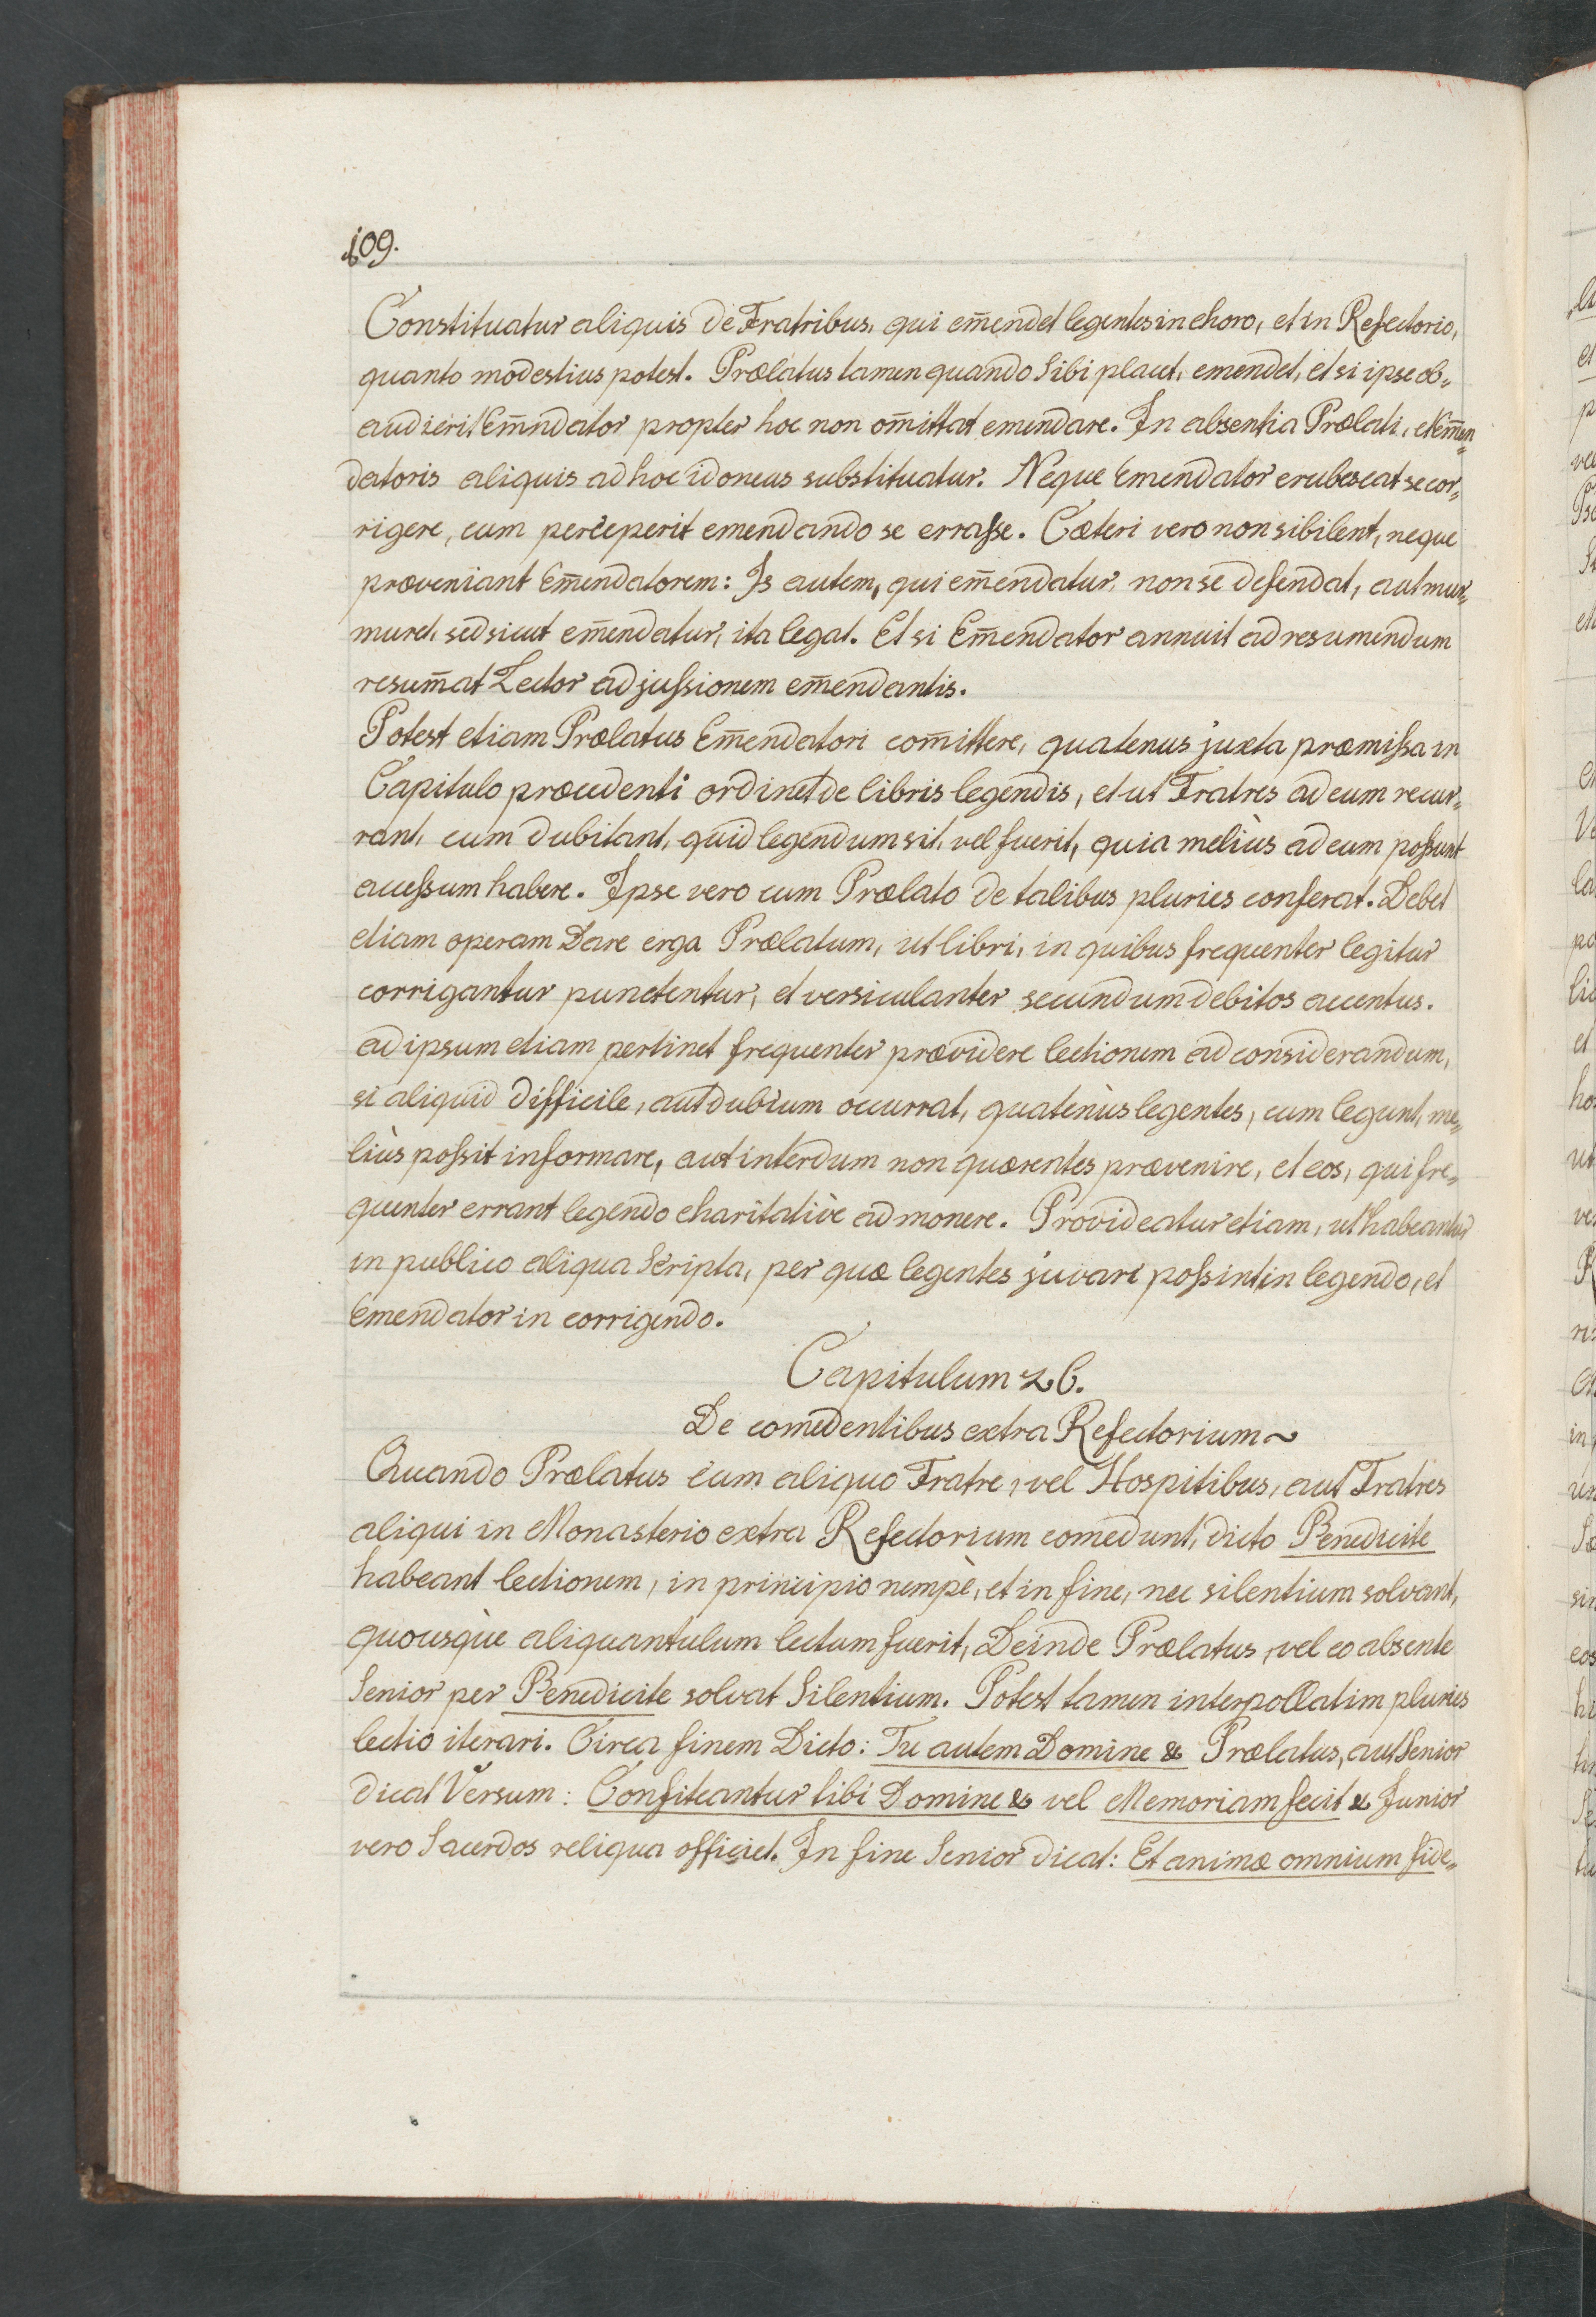 109.
Constituatur aliquis de Fratribus, qui em̄endet legentes in choro, et in Refectorio,
quanto modestius potest. Prælatus tamen quando Sibi placet, emendet, et si ipse ob„
audierit Em̄ndator propter hoc non om̄ittat emendare. In absentia Prælati, et Em̄en„
datoris aliquis ad hoc idoneus substituatur. Neque Emendator erubescat se cor„
rigere, cum perceperit emendando se erraſse. Cæteri vero non sibilent, neque
præveniant Em̄endatorem: Is autem, qui em̄endatur, non se defendat, aut mur„
muret, sed sicut em̄endatur, ita legat. Et si Em̄endator annuit ad resumendum
resum̄at Lector ad juſsionem em̄endantis.
Potest etiam Prælatus Em̄endatori com̄ittere, quatenus juxta præmiſsa in
Capitulo præcedenti ordinet de libris legendis, et ut Fratres ad eum recur„
rant, cum dubitant, quid legendum sit, vel fuerit, quia meliùs ad eum poſsunt
acceſsum habere. Ipse vero cum Prælato de talibus pluries conferat. Debet
etiam operam Dare erga Prælatum, ut libri, in quibus frequenter legitur
corrigantur punctentur, et versiculanter secundum debitos accentus.
ad ipsum etiam pertinet frequenter prævidere lectionem ad considerandum,
si aliquid difficile, aut dubium occurrat, quatenùs legentes, cum legunt, me„
liùs poſsit informare, aut interdum non quærentes prævenire, et eos, qui fre„
quenter errant legendo charitativè admonere. Provideatur etiam, ut habeantur
in publico aliqua Scripta, per quæ legentes juvari poſsint in legendo, et
Emendator in corrigendo.
Capitulum 26.
De comedentibus extra Refectorium~
Quando Prælatus cum aliquo Fratre, vel Hospitibus, aut Fratres
aliqui in Monasterio extra Refectorium comedunt, dicto Benedicite
habeant lectionem, in principio nempè, et in fine, nec silentium solvant,
quousquè aliquantulum lectum fuerit, Deinde Prælatus, vel eo absente
Senior per Benedicite solvat Silentium. Potest tamen interpollatim pluries
lectio iterari. Circa finem Dicto: Tu autem Domine & Prælatus, aut Senior
dicat Versum: Confiteantur tibi Domine & vel Memoriam fecit & Junior
vero Sacerdos reliqua officiet. In fine Senior dicat: Et animæ omnium fide„